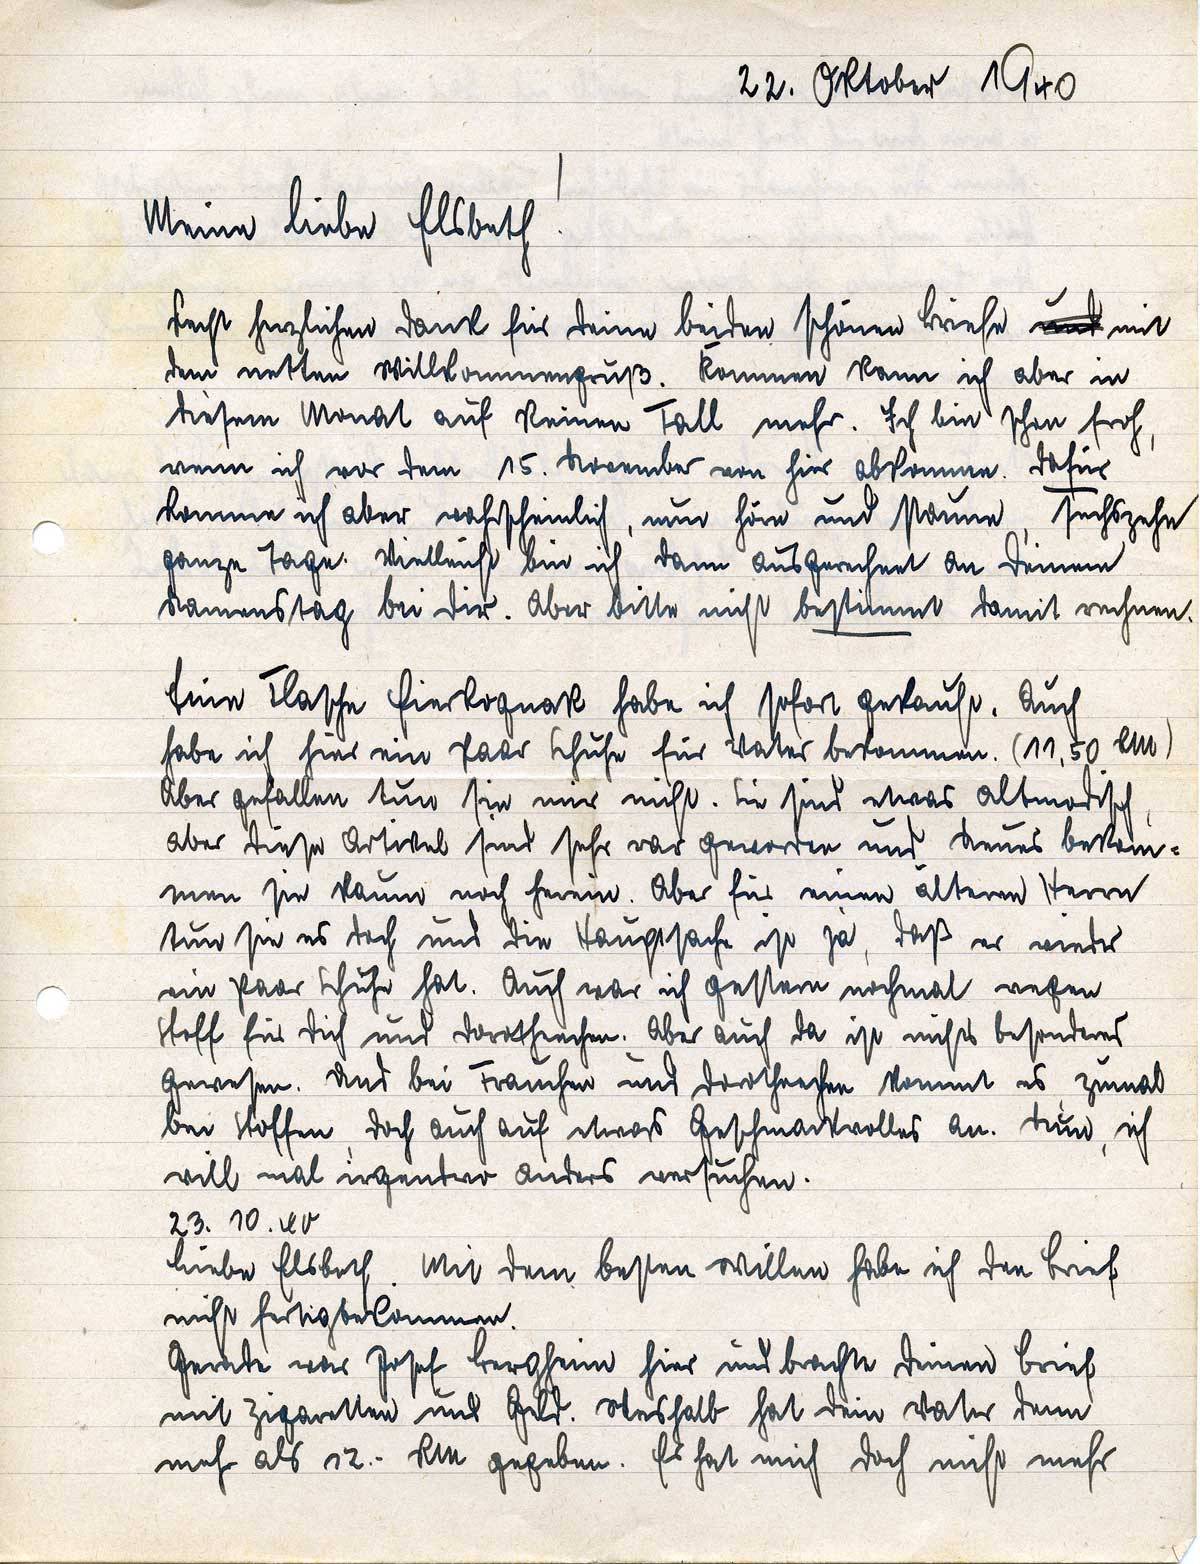 22. Oktober 1940
Meine liebe Elsbeth!
Recht herzlichen Dank für Deine beiden schönen Briefe und mit
dem netten Willkommengruß. Kommen kann ich aber in
diesem Monat auf keinen Fall mehr. Ich bin schon froh,
wenn ich vor dem 15. November von hier abkomme. Dafür
komme ich aber wahrscheinlich, nun höre und staune, sechszehn
ganze Tage. Vielleicht bin ich dann ausgerechnet an Deinem
Namenstag bei Dir. Aber bitte nicht bestimmt damit rechnen.
Eine Flasche Eierkognak habe ich sofort gekauft. Auch
habe ich hier ein Paar Schuhe für Vater bekommen. (11,50 RM)
Aber gefallen tun sie mir nicht. Sie sind etwas altmodisch,
aber diese Artikel sind sehr rar geworden und Neues bekom-
men sie kaum noch herein. Aber für einen älteren Herrn
tun sie es doch und die Hauptsache ist ja, daß er wieder
ein Paar Schuhe hat. Auch war ich gestern nochmal wegen
Stoff für Dich und Dorotheechen. Aber auch da ist nichts besonderes
gewesen. Und bei Frauchen und Dorotheechen kommt es, zumal
bei Stoffen, doch auch auf etwas Geschmackvolles an. Nun, ich
will mal irgendwo anders versuchen.
23. 10. 40
Liebe Elsbeth. Mit dem besten Willen habe ich den Brief
nicht fertigbekommen.
Gerade war Josef Bergheim hier und brachte Deinen Brief
mit Zigaretten und Geld. Weshalb hat Dein Vater denn
mehr als 12.- RM gegeben. Es hat mich doch nicht mehr